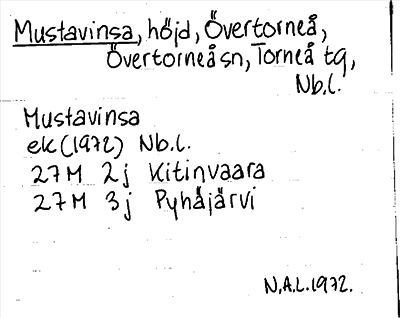 Mustavinsa, höjd, Övertorneå,
Övertorneå sn, Torneå tg,
Nb.l.
Mustavinsa
ek (1972) Nb.l.
27M 2j Kitinvaara
27M 3j Pyhäjärvi
N.A.L. 1972.